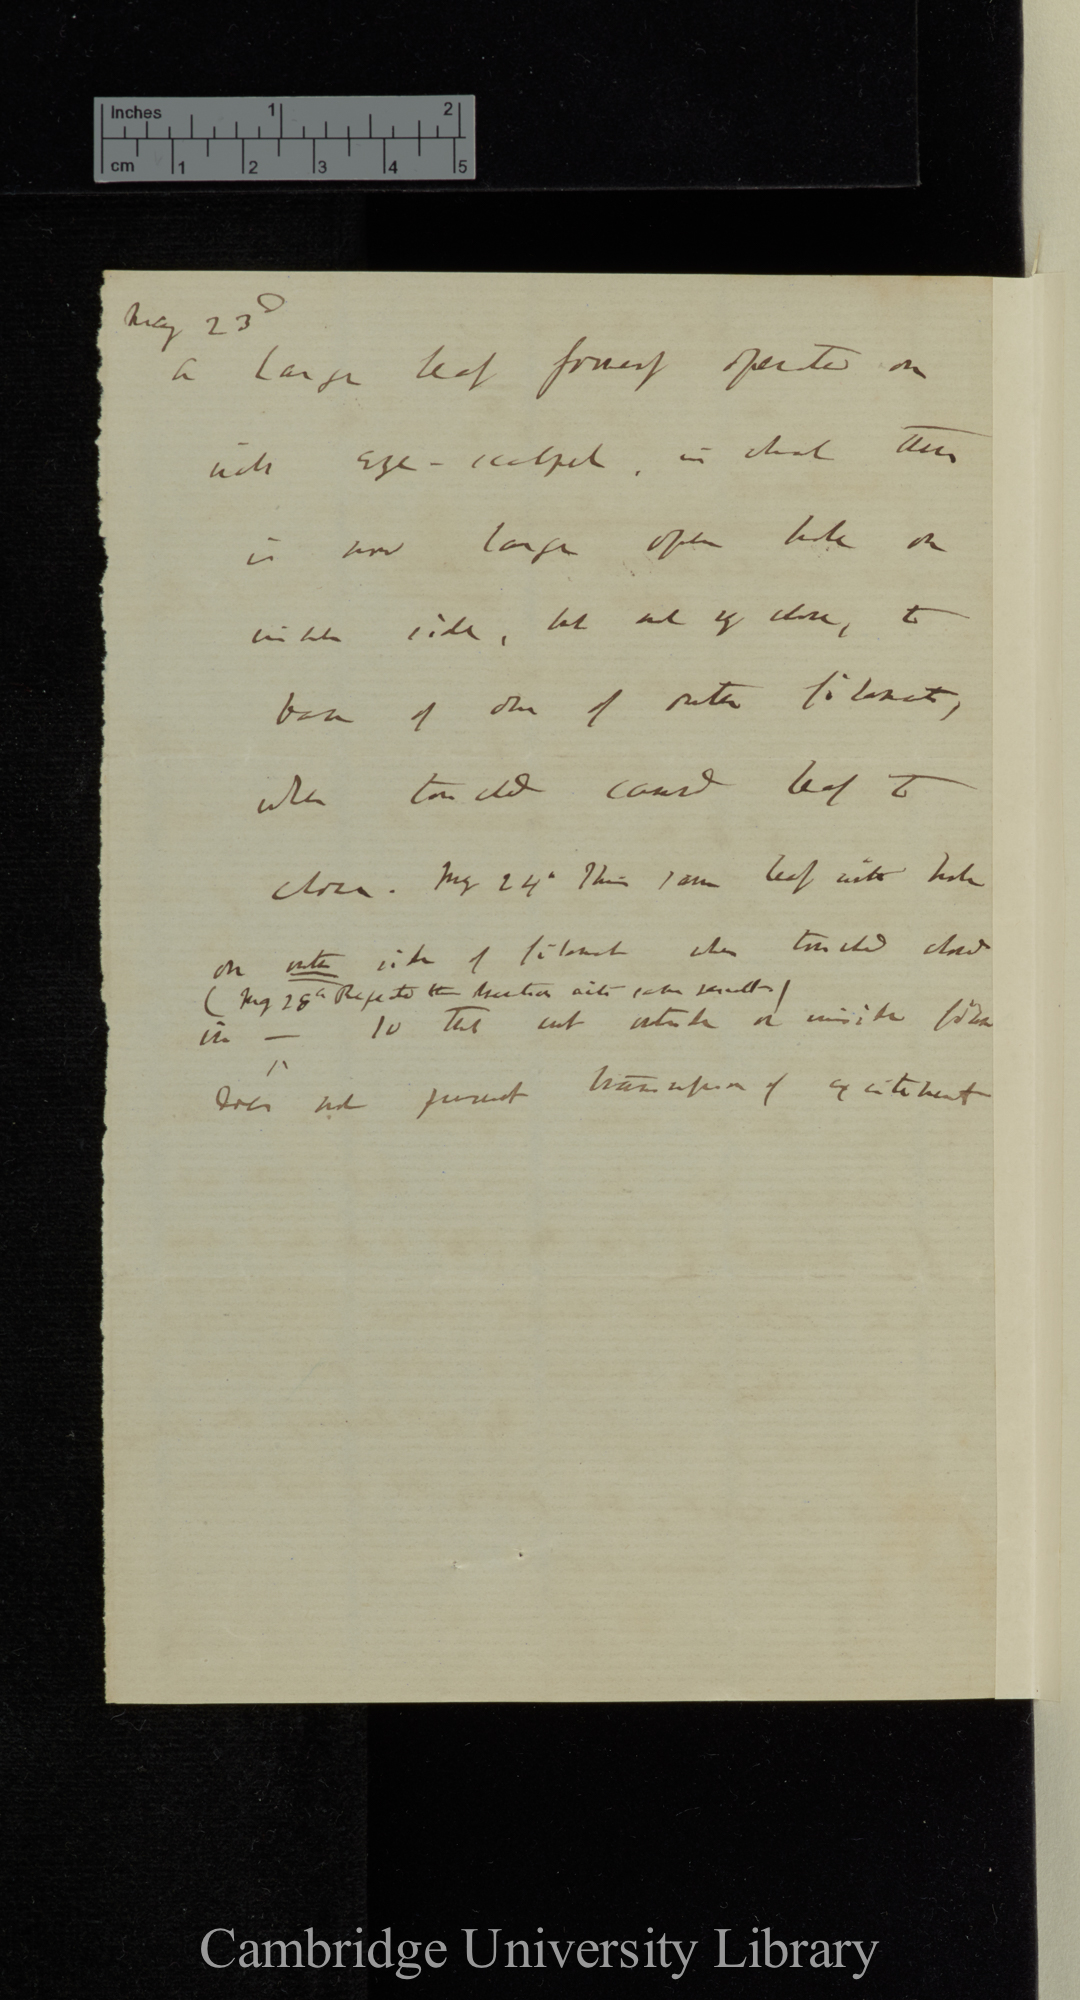 Inches 1 2
cm 1 2 3 4 5
May 23d
A large leaf formerly operated on
with eye-scalpel, in which there
is now large open hole on
inner side, but not v close, to
base of one of outer filaments,
when touched caused leaf to
close. May 24th This same leaf with hole
on outer side of filament when touched closed
(May 28th Repeated the dissection with same results)
in — So that cut outside or inside
does not prevent transmission of excitement
Cambridge University Library